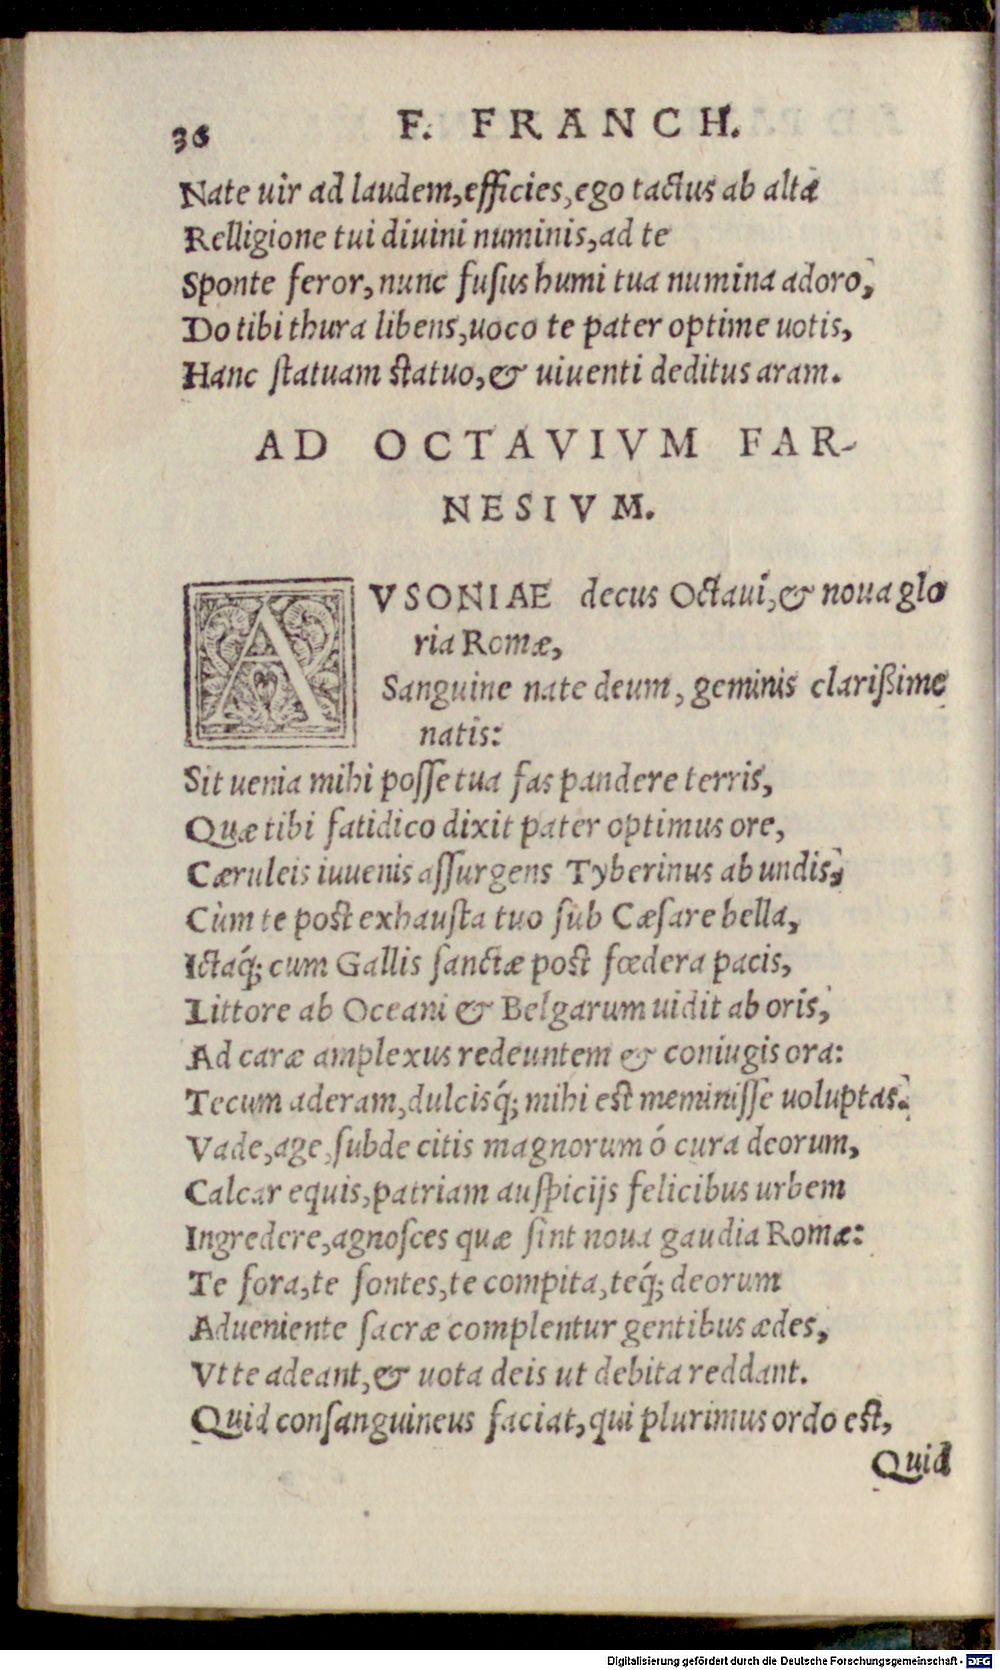 36 F. FRANCH.
Nate uir ad laudem, efficies, ego tactus ab alta
Relligione tui diuini numinis, ad te
Sponte feror, nunc fusus humi tua numina adoro,
Do tibi thura libens, uoco te pater optime uotis,
Hanc statuam statuo, & uiuenti deditus aram.
AD OCTAVIVM FAR-
NESIVM.
AVSONIAE decus Octaui, & noua glo
ria Romæ,
Sanguine nate deum, geminis clarißime
natis:
Sit uenia mihi posse tua fas pandere terris,
Quæ tibi fatidico dixit pater optimus ore,
Cæruleis iuuenis assurgens Tyberinus ab undis,
Cùm te post exhausta tuo sub Cæsare bella,
Ictaq́; cum Gallis sanctæ post fœdera pacis,
Littore ab Oceani & Belgarum uidit ab oris,
Ad caræ amplexus redeuntem & coniugis ora:
Tecum aderam, dulcisq́; mihi est meminisse uoluptas.
Vade, age, subde citis magnorum ó cura deorum,
Calcar equis, patriam auspicijs felicibus urbem
Ingredere, agnosces quæ sint noua gaudia Romæ:
Te fora, te fontes, te compita, teq́; deorum
Adueniente sacræ complentur gentibus ædes,
Vt te adeant, & uota deis ut debita reddant.
Quid consanguineus faciat, qui plurimus ordo est,
Quid
Digitalisierung gefördert durch die Deutsche Forschungsgemeinschaft - DFG